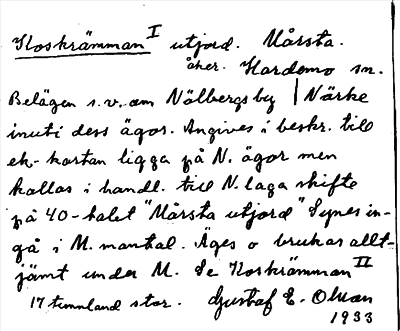 Koskrämman I utjord. Mårsta.
åker. Hardemo sn.
Belägen s.v. om Nälbergs by | Närke
inuti dess ägor. Angives i beskr. till
ek-kartan ligga på N. ägor men
kallas i handl. till N. laga skifte
på 40-talet "Mårsta utjord" Synes in-
gå i M. mantal. Äges o brukas allt-
jämt under M. Se Koskrämman II
17 tunnland stor. Gustaf E. Olsson
1933